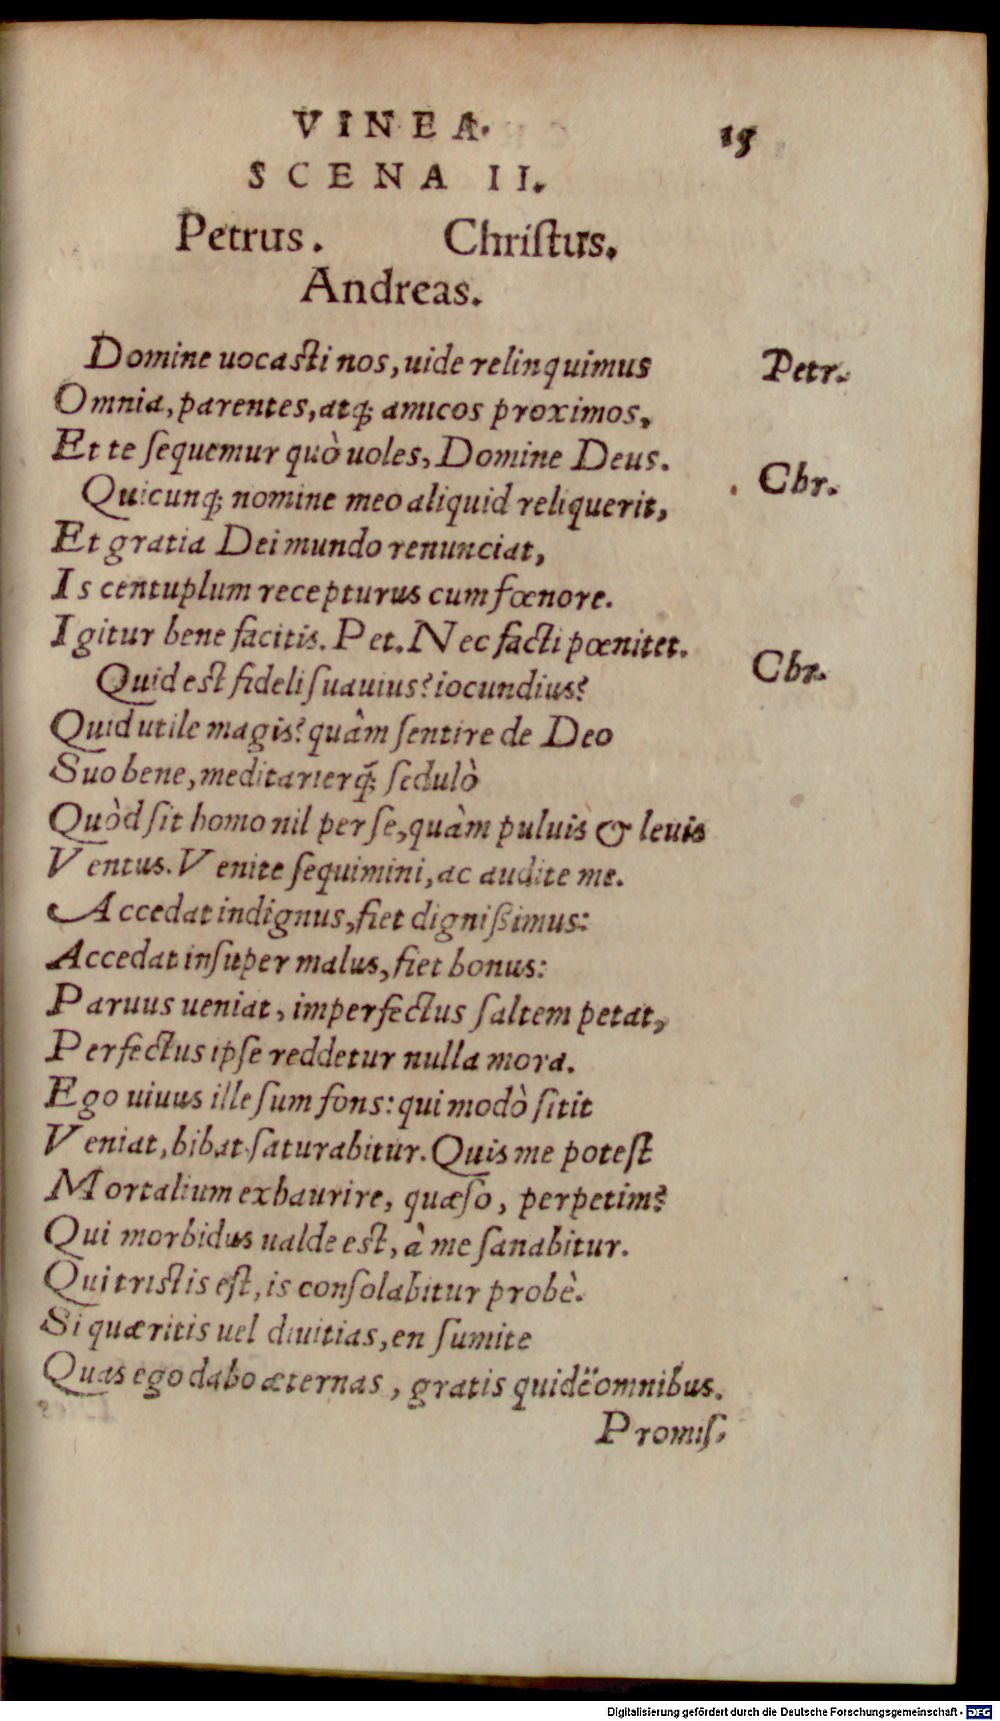 VINEA. 15
SCENA II.
Petrus. Chriſtus.
Andreas.
Domine uocaſti nos, uide relinquimus Petr.
Omnia, parentes, atq; amicos proximos,
Et te ſequemur quò uoles, Domine Deus.
Quicunq; nomine meo aliquid reliquerit, Chr.
Et gratia Dei mundo renunciat,
Is centuplum recepturus cum fœnore.
Igitur bene facitis. Pet. Nec facti pœnitet.
Quid eſt fideli ſuauius? iocundius? Chr.
Quid utile magis? quâm ſentire de Deo
Suo bene, meditarierq́; ſedulò
Quòd ſit homo nil per ſe, quàm puluis & leuis
Ventus. Venite ſequimini, ac audite me.
Accedat indignus, fiet digniſſimus:
Accedat inſuper malus, fiet bonus:
Paruus ueniat, imperfectus ſaltem petat,
Perfectus ipſe reddetur nulla mora.
Ego uiuus ille ſum fons: qui modò ſitit
Veniat, bibat ſaturabitur. Quis me poteſt
Mortalium exhaurire, quæſo, perpetim?
Qui morbidus ualde eſt, à me ſanabitur.
Qui triſtis eſt, is conſolabitur probè.
Si quæritis uel diuitias, en ſumite
Quas ego dabo æternas, gratis quidē omnibus.
Promiſ,
Digitalisierung gefördert durch die Deutsche Forschungsgemeinschaft - DFG